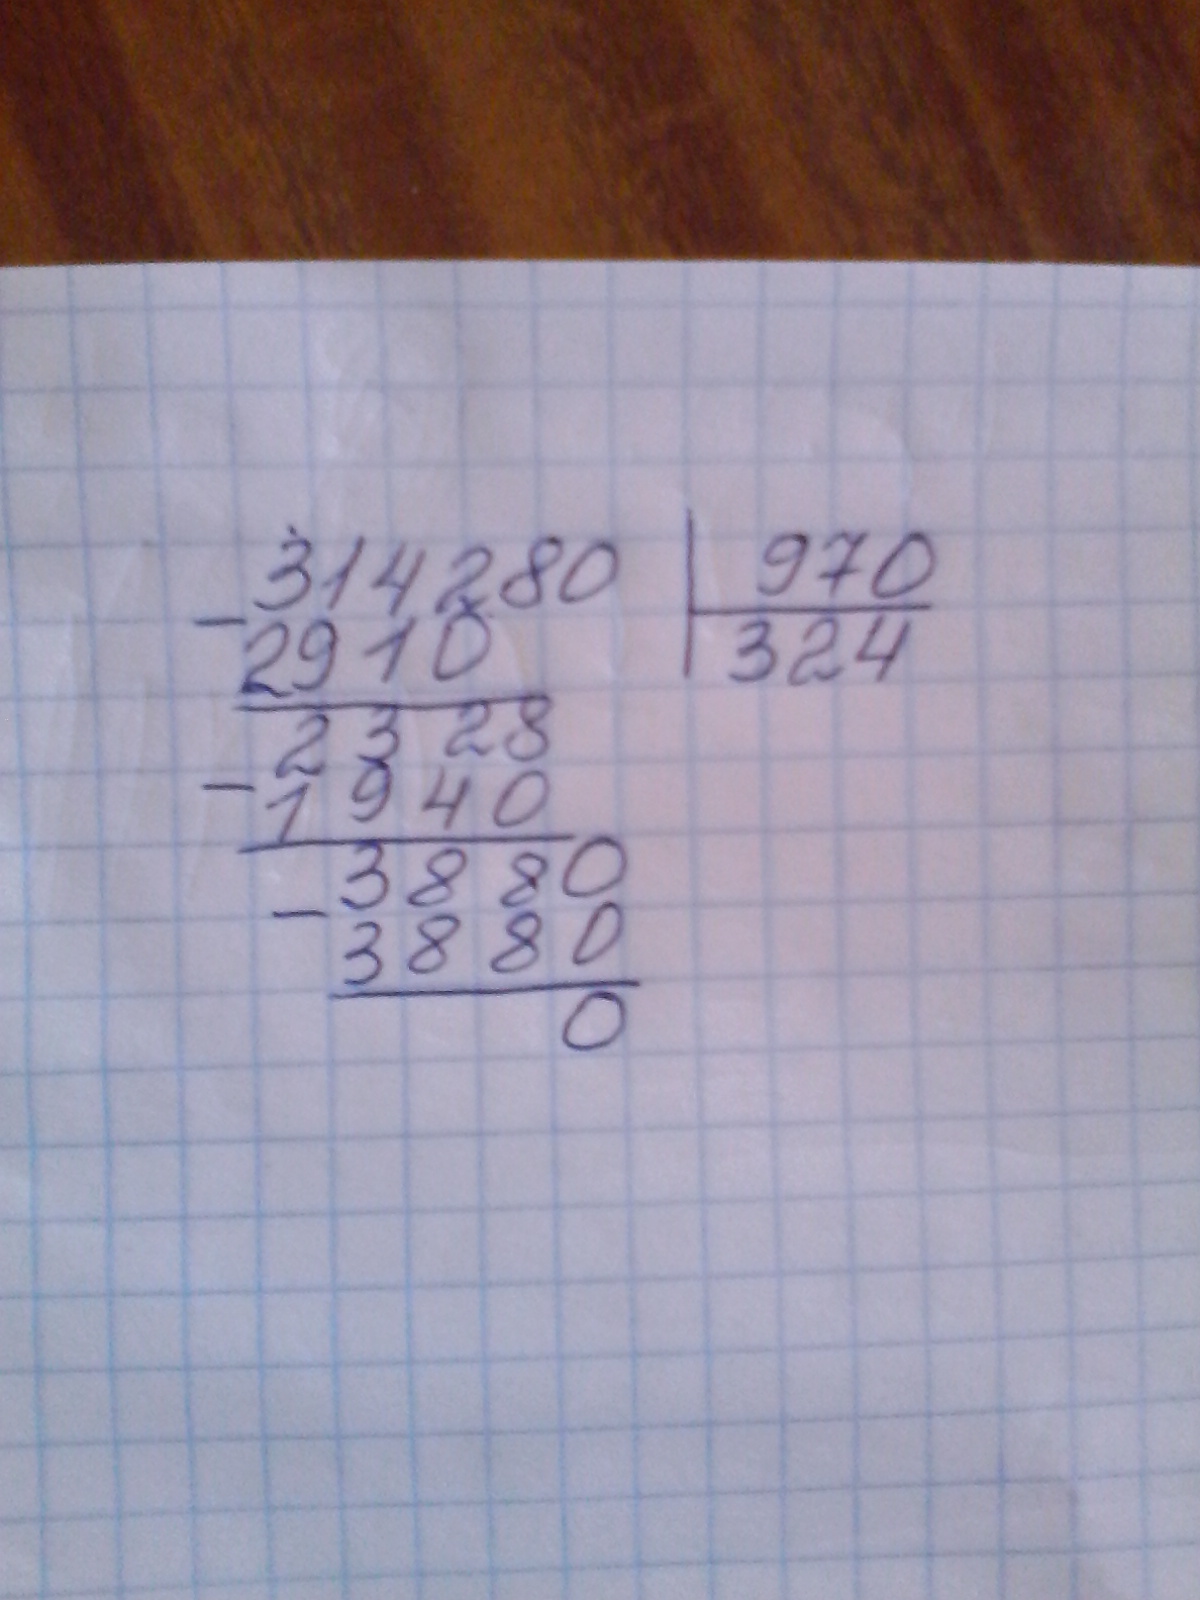 314280 | 970
- 2910 | 324
2328
- 1940
3880
- 3880
0